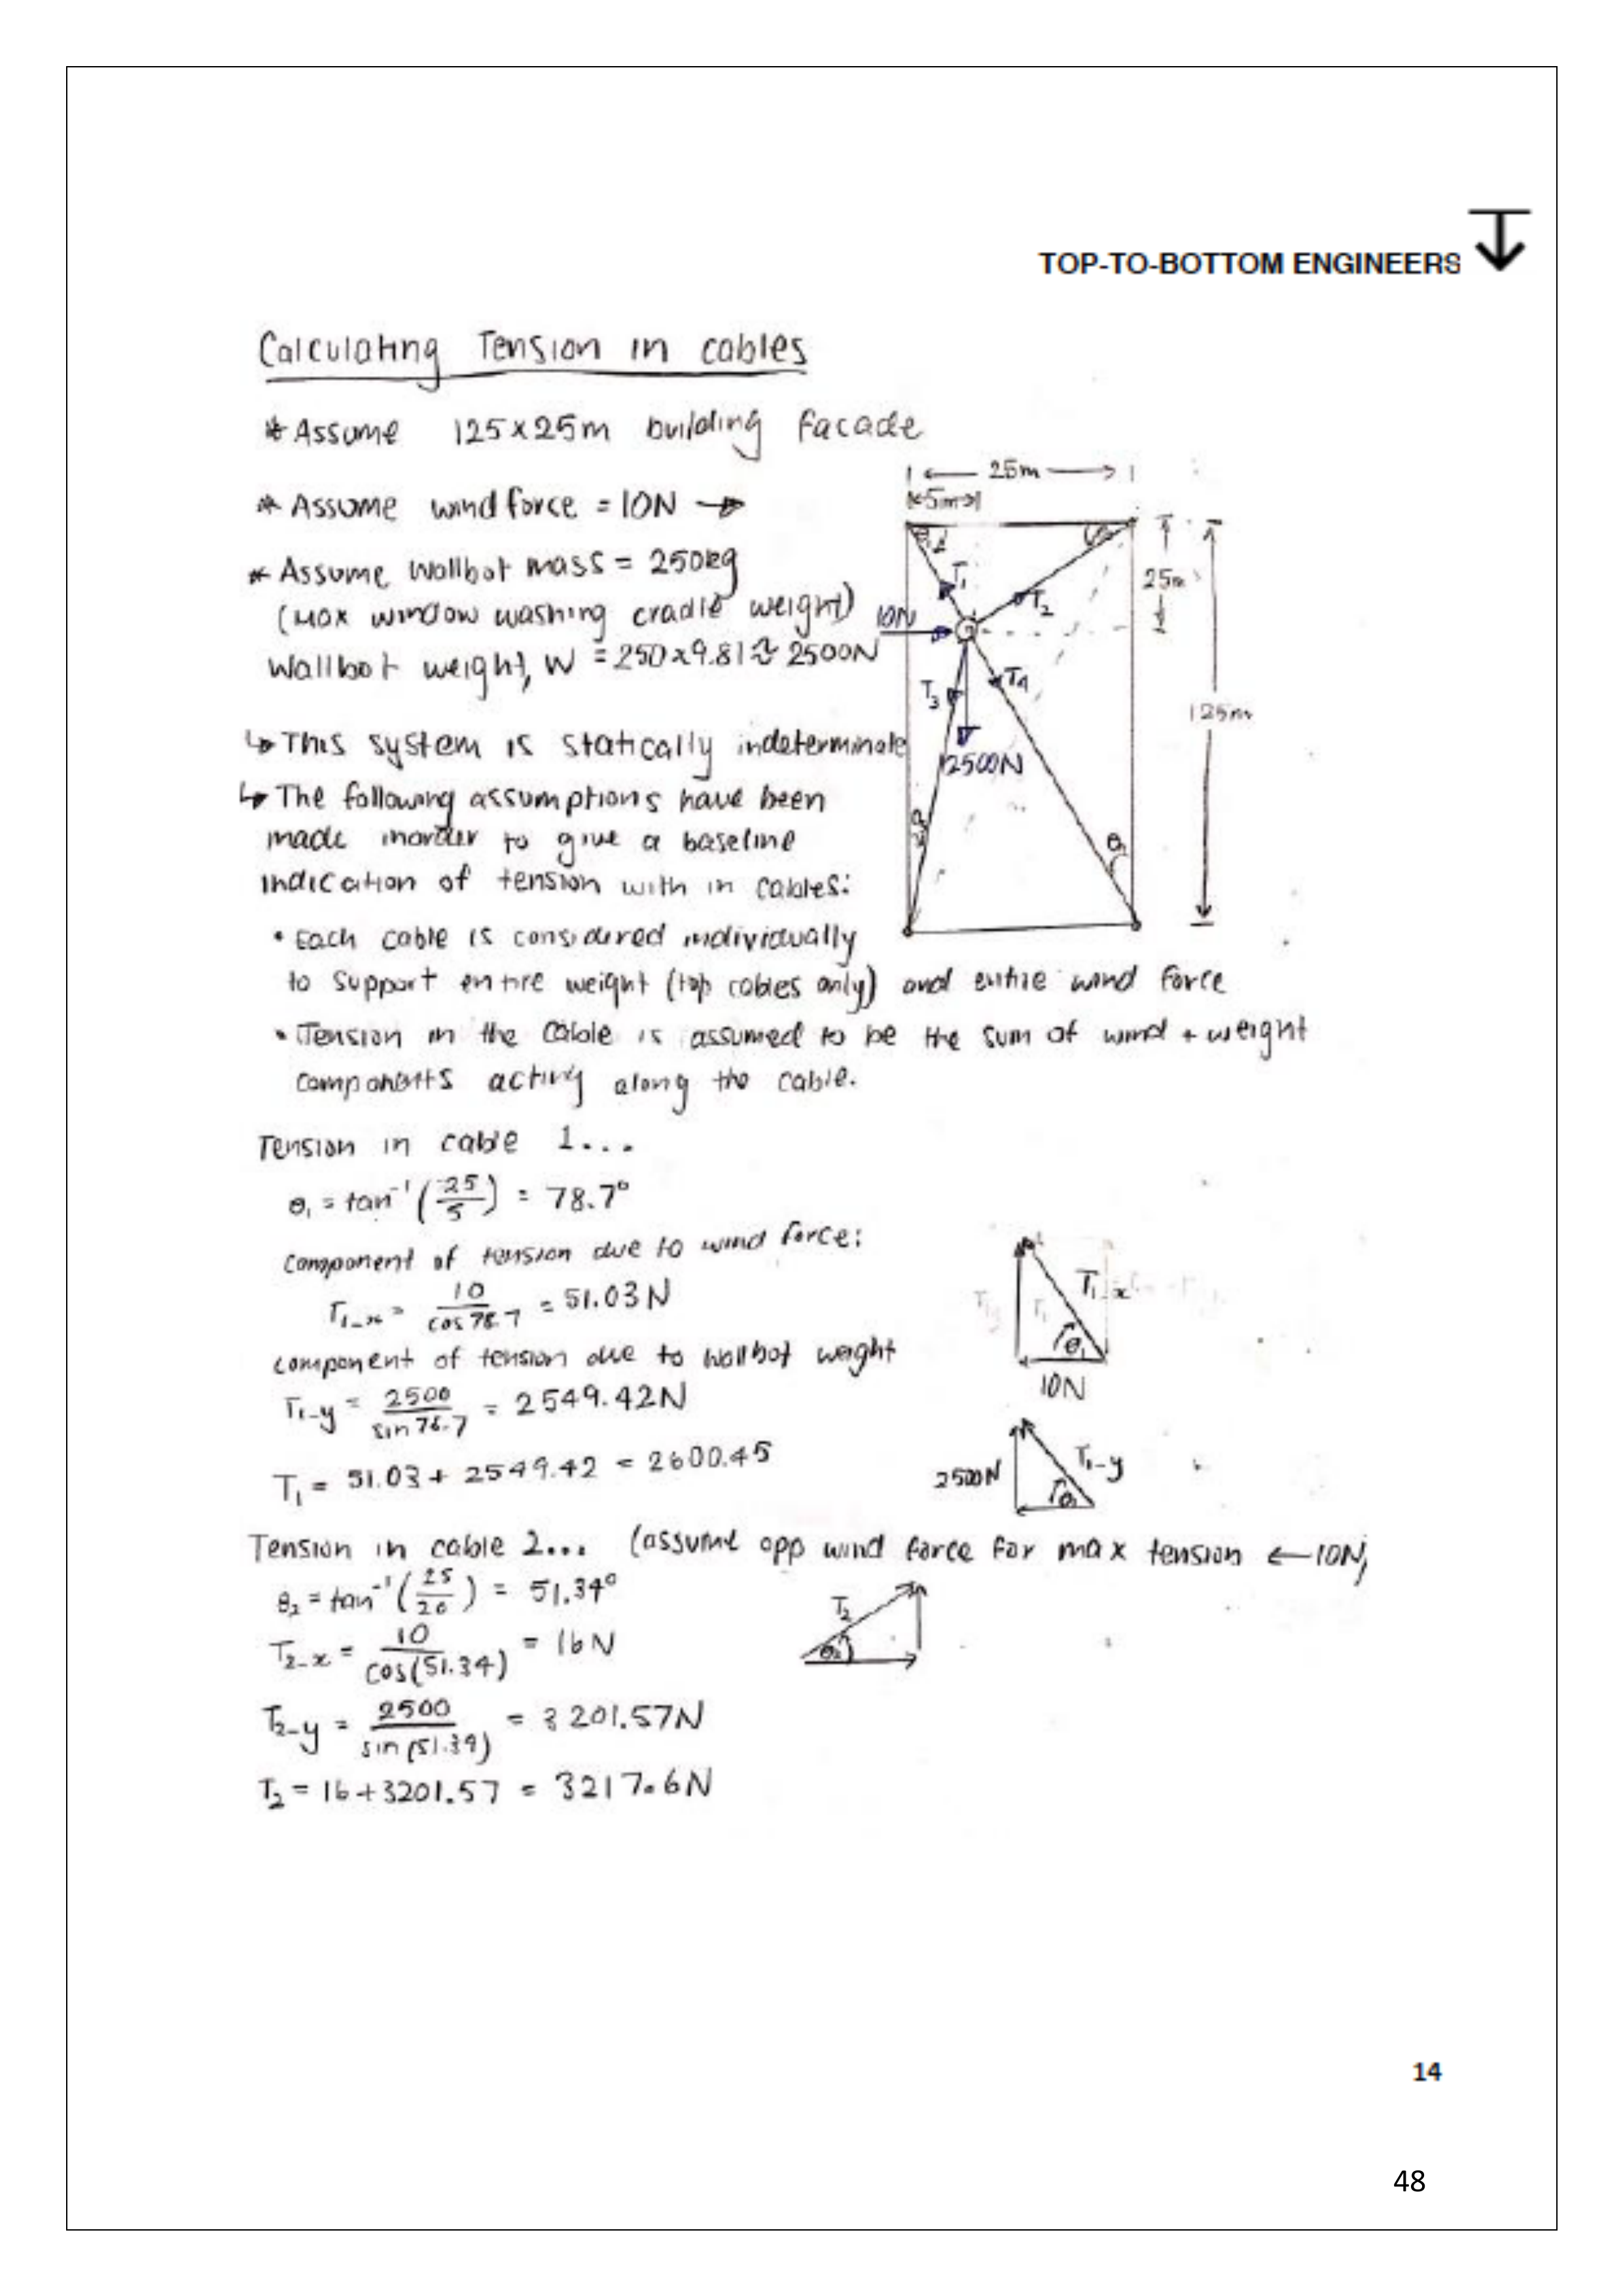 TOP-TO-BOTTOM ENGINEERS
Calculating Tension in cables
* Assume 125x25m building facade
* Assume wind force = 10N →
* Assume Wallbot mass = 250kg
(Max window washing cradle weight)
Wallbot weight, W = 250x9.81 ≈ 2500N
25m
5m
T1
T2
25m
10N
T3
T4
125m
2500N
↳ This system is statically indeterminate
↳ The following assumptions have been
made inorder to give a baseline
indication of tension with in cables:
• Each cable is considered individually
to support entire weight (top cables only) and entire wind force
• Tension in the cable is assumed to be the sum of wind + weight
components acting along the cable.
Tension in cable 1...
θ1 = tan⁻¹ (25/5) = 78.7°
component of tension due to wind force:
T1-x = 10/cos 78.7 = 51.03N
T1-x
θ1
10N
component of tension due to wallbot weight
T1-y = 2500/sin 78.7 = 2549.42N
2500N
T1-y
θ1
T1 = 51.03 + 2549.42 = 2600.45
Tension in cable 2... (assume opp wind force for max tension ← 10N)
θ2 = tan⁻¹ (25/20) = 51.34°
T2
θ2
T2-x = 10/cos(51.34) = 16N
T2-y = 2500/sin(51.34) = 3201.57N
T2 = 16+3201.57 = 3217.6N
14
48